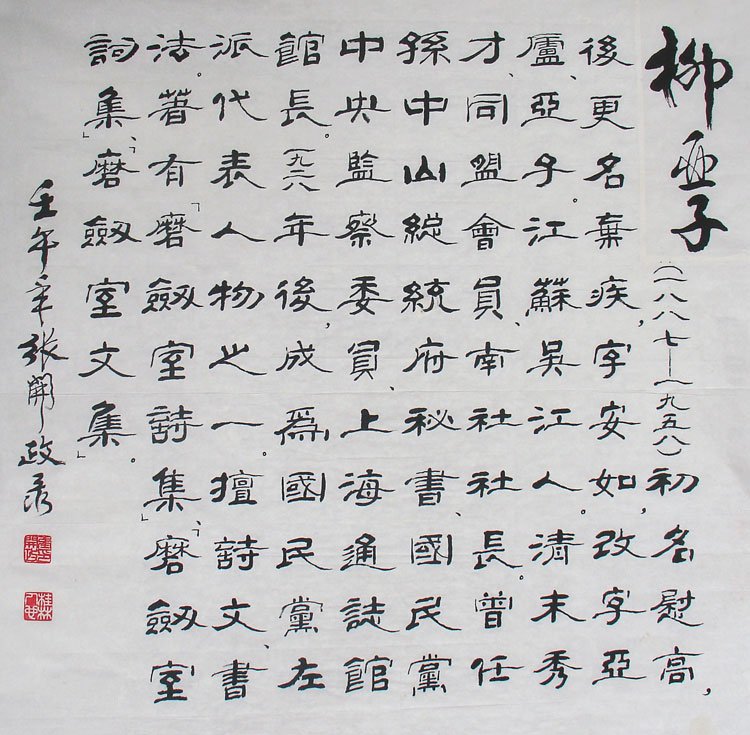 柳亞子(一八八七—一九五八)初名慰高,
後更名棄疾,字安如,改字亞
廬、亞子。江蘇吳江人。清末秀
才、同盟會員、南社社長。曾任
孫中山總統府秘書、國民黨
中央監察委員、上海通誌館
館長。一九二八年後,成為國民黨左
派代表人物之一。擅詩文、書
法。著有「磨劍室詩集」、「磨劍室
詞集」、「磨劍室文集」。
壬午年張開政录